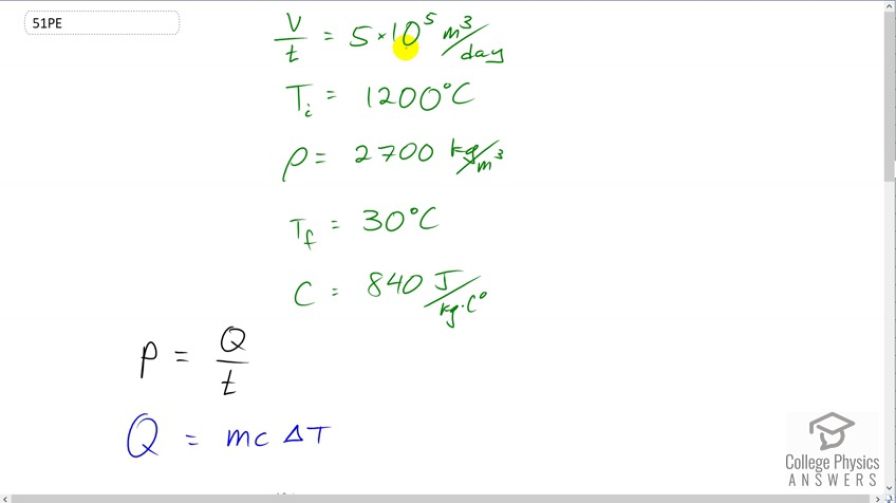 51PE
V/t = 5×10⁵ m³/day
Tᵢ = 1200°C
ρ = 2700 kg/m³
T_f = 30°C
C = 840 J/kg·C°
P = Q/t
Q = mc ΔT
College Physics
ANSWERS